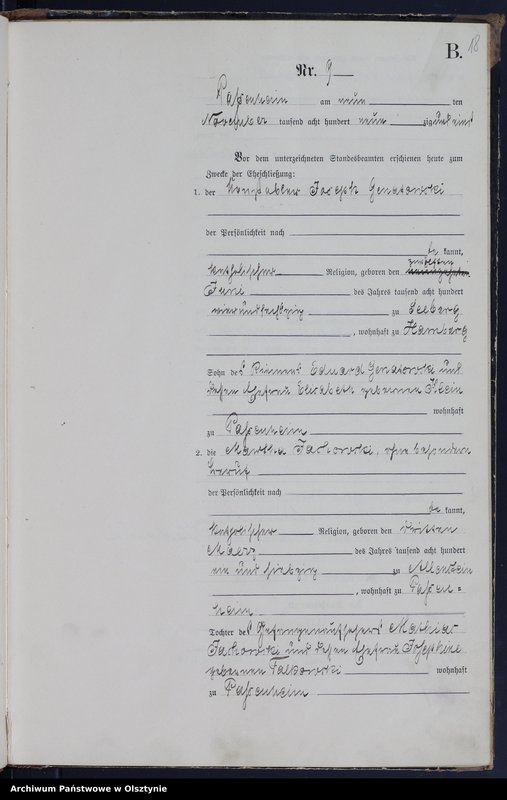 B. 18
Nr. 9
Passenheim am neun ten
November tausend acht hundert neunzig und eins
Vor dem unterzeichneten Standesbeamten erschienen heute zum
Zwecke der Eheschließung:
1. der Konstabler Joseph Genatowski
der Persönlichkeit nach
be kannt,
zwölften
katholischer Religion, geboren den
Juni des Jahres tausend acht hundert
vier und sechszig zu Seeburg
, wohnhaft zu Hamburg
Sohn des Eduard Genatowski und
dessen Ehefrau Elisabeth geborenen Klein
wohnhaft
zu Passenheim
2. die Martha Jackowski, ohne besonderen
Beruf
der Persönlichkeit nach
be kannt,
katholischer Religion, geboren den dritten
Maerz des Jahres tausend acht hundert
ein und siebzig zu Allenstein
, wohnhaft zu Passen=
heim
Tochter des Gefangenaufsehers Mathias
Jackowski und dessen Ehefrau Josephine
geborenen wohnhaft
zu Passenheim
Archiwum Państwowe w Olsztynie